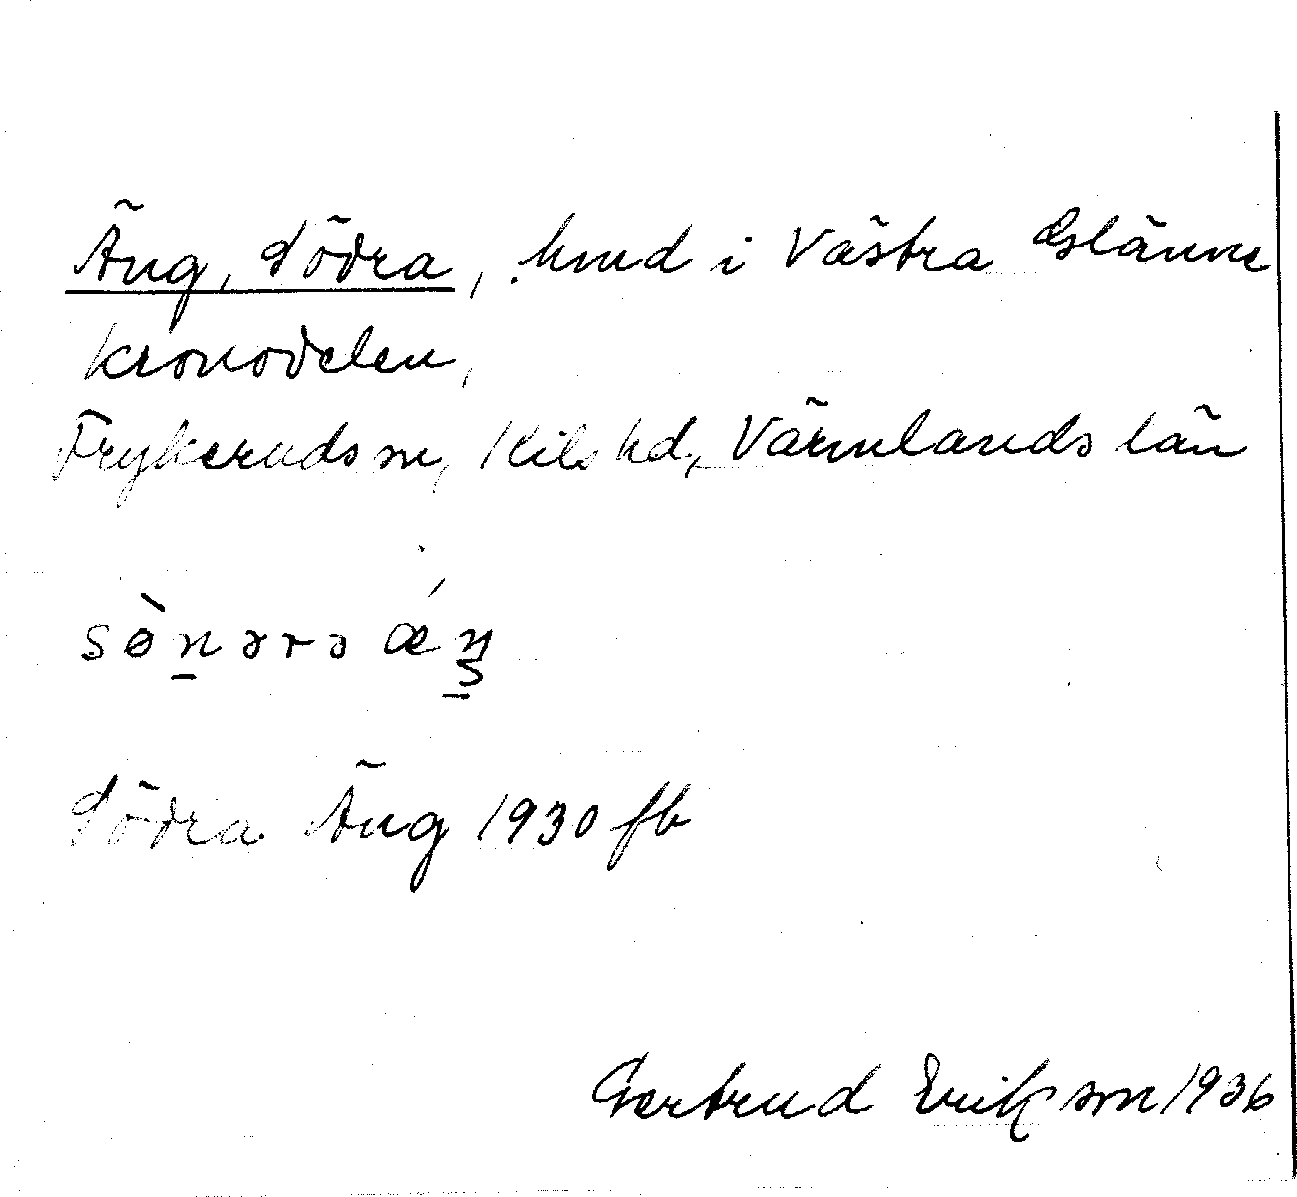 Äng, Södra, hmd i Västra Glänne
kronodelen,
Frykeruds sn, Kils hd, Värmlands län
sø̀nərə ǽŋ
Södra Äng 1930 fb
Gertrud Erikson 1936